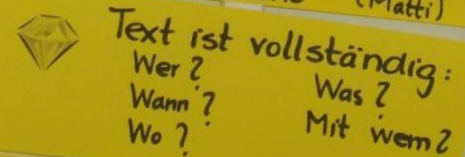 (Matti)
Text ist vollständig:
Wer?
Wann?
Wo?
Was?
Mit wem?